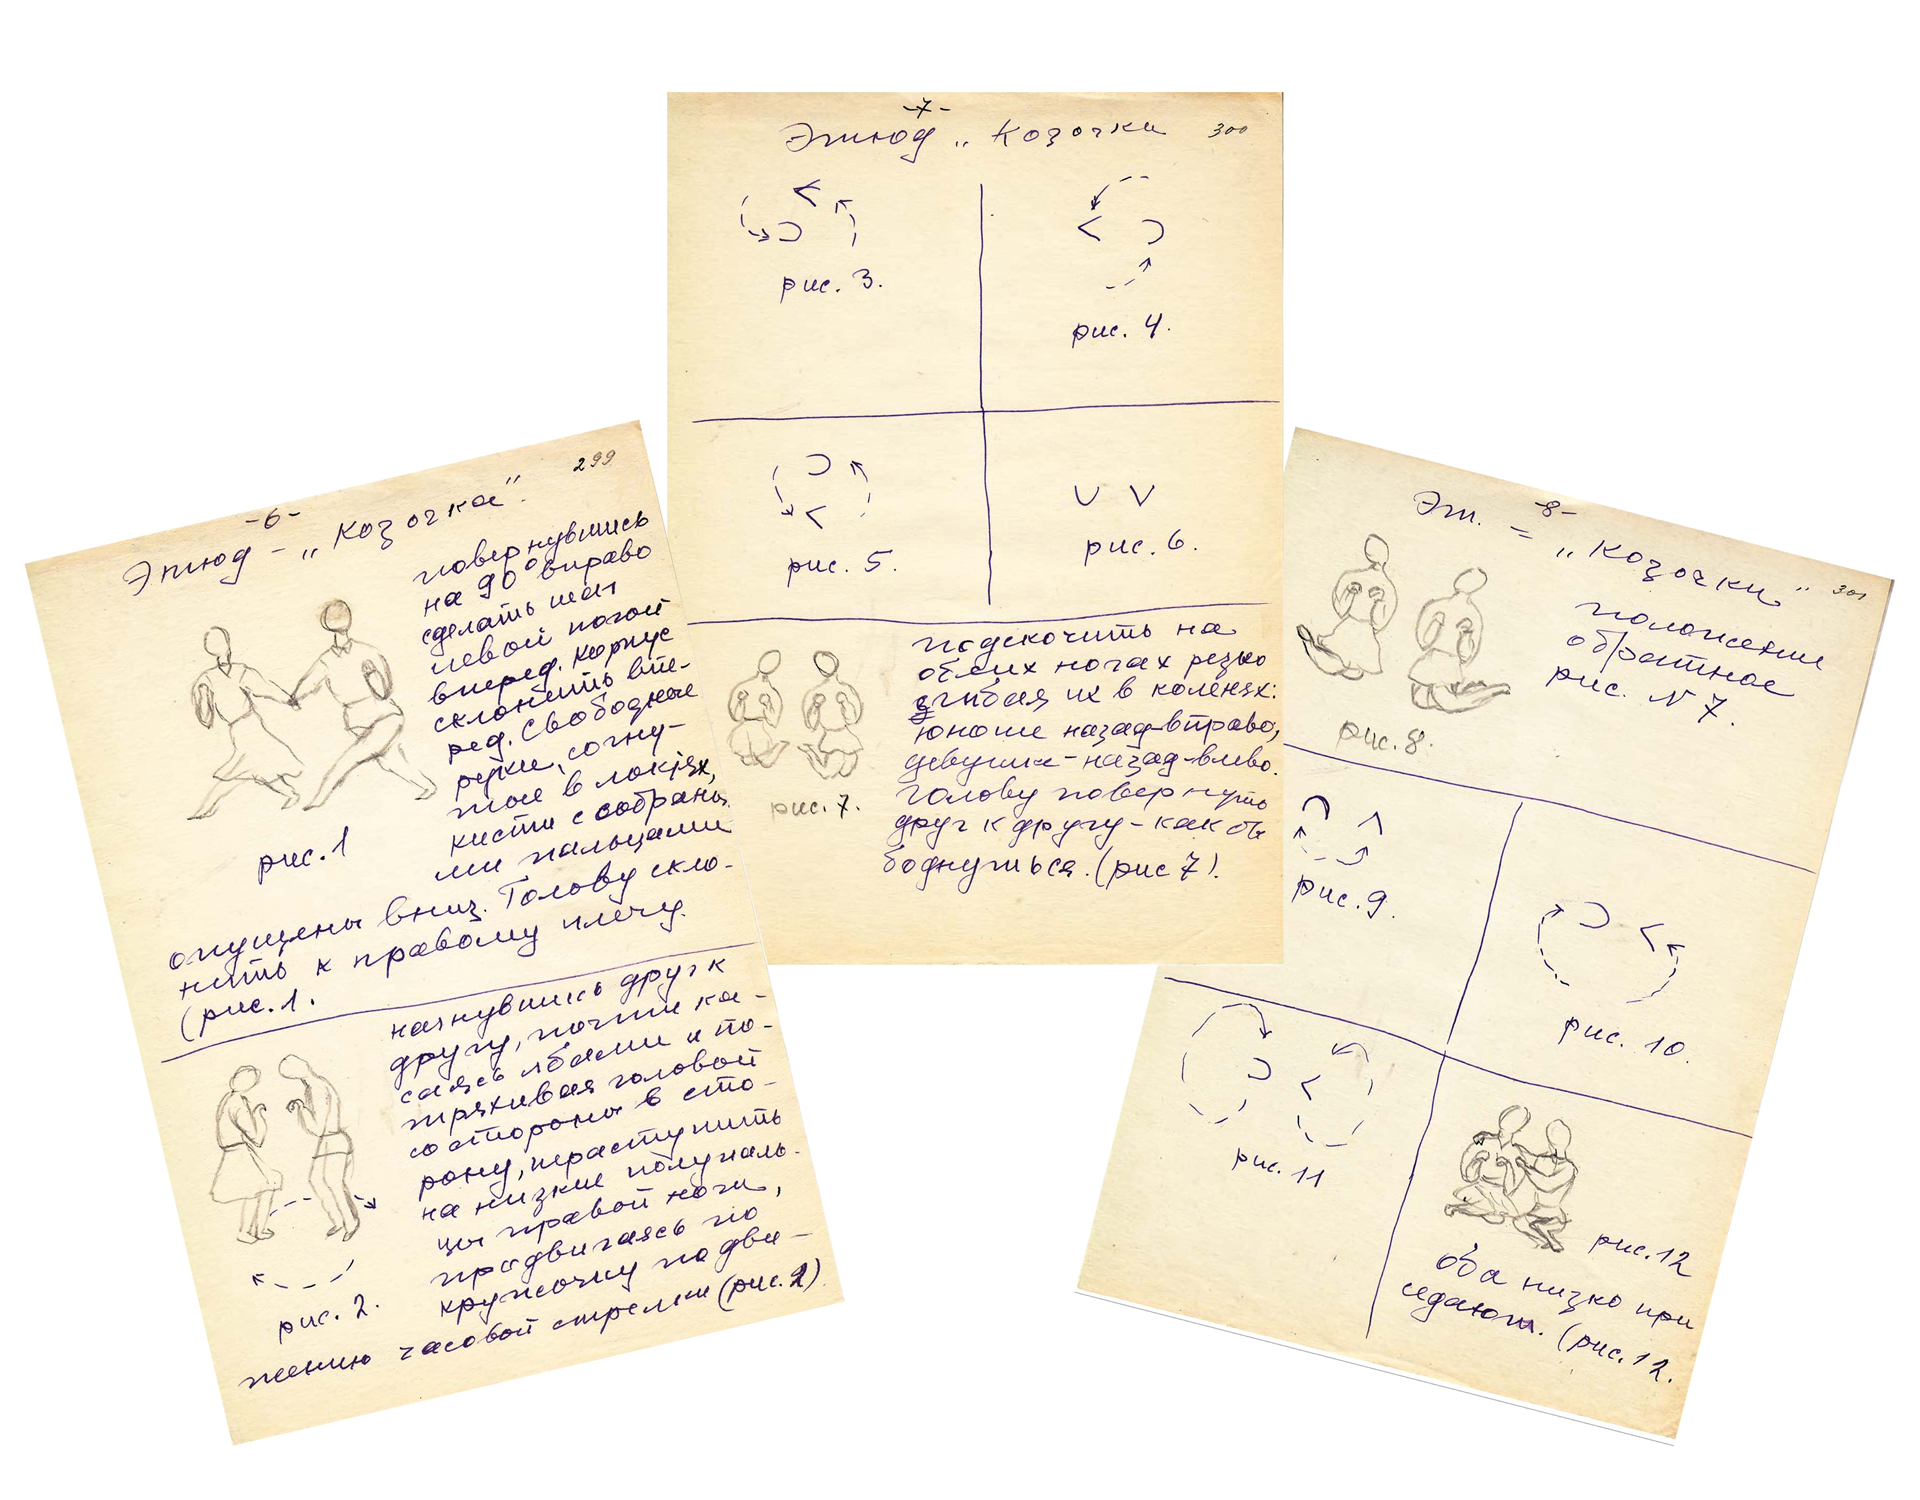 -6-
299
Этюд - „Козочка".
повернувшись
на 90° вправо
сделать шаг
левой ногой
вперед. Корпус
склонить впе-
ред. Свободные
руки, согну-
тые в локтях,
кисти с собраны
ми пальцами
опущены вниз. Голову скло-
нить к правому плечу.
(рис. 1.
рис. 1
нагнувшись друг к
другу, почти ка-
саясь лбами и по-
тряхивая головой
со стороны в сто-
рону, переступить
на низкие полупаль-
цы правой ноги,
продвигаясь по
кружочку по дви-
жению часовой стрелки (рис. 2)
рис. 2.
-7-
Этюд „Козочки
300
рис. 3.
рис. 4.
рис. 5.
рис. 6.
подскочить на
обеих ногах резко
сгибая их в коленях:
юноше назад-вправо,
девушке-назад-влево.
Голову повернуть
друг к другу - как бы
боднуться. (рис 7).
рис. 7.
-8-
Эт. = „Козочки"
301
положение
обратное
рис. N 7.
рис. 8.
рис. 9.
рис. 10.
рис. 11
рис. 12
оба низко при
седают. (рис. 12.